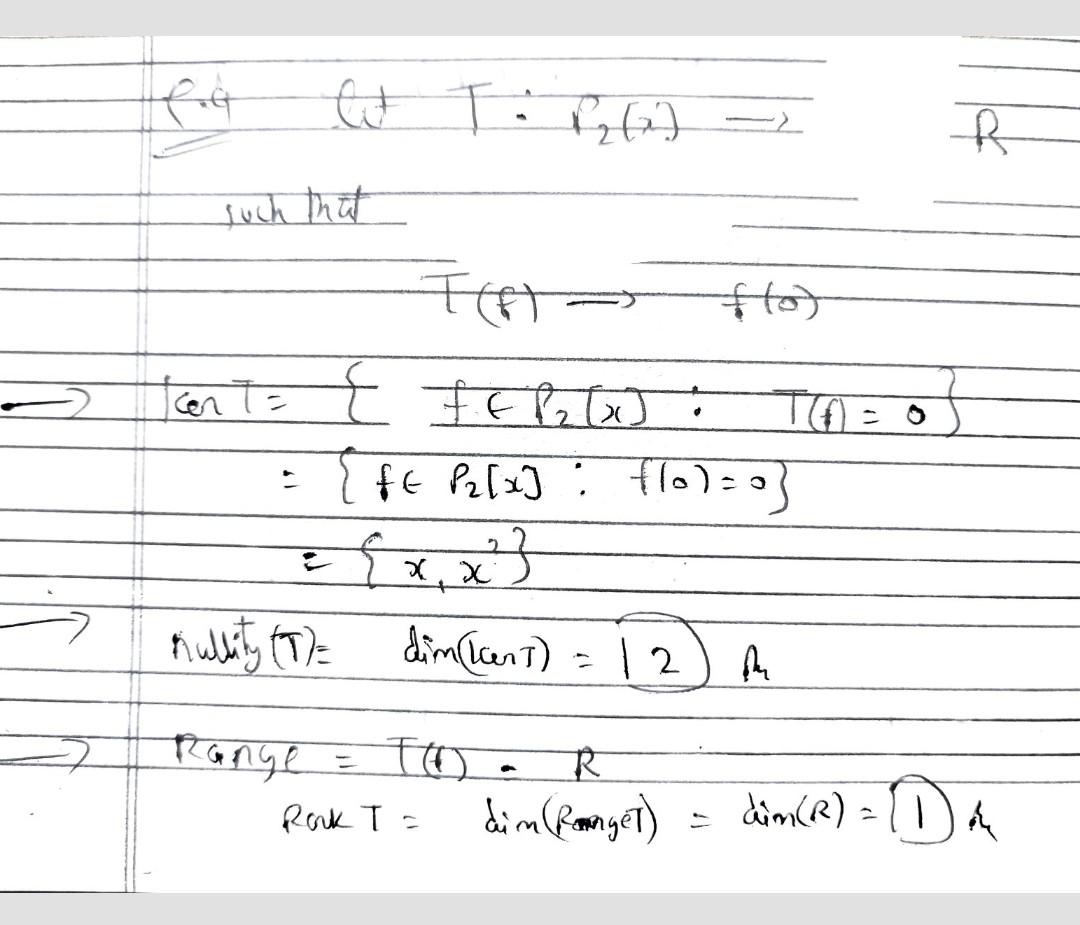 e.g let T : P₂(x) → R
such that
T(f) → f(0)
→ Ker T = { f ∈ P₂[x] : T(f) = 0 }
= { f ∈ P₂[x] : f(0) = 0 }
= { x, x² }
→ Nullity (T) = dim(Ker T) = 2
→ Range = T(f) = R
Rank T = dim(Range T) = dim(R) = 1